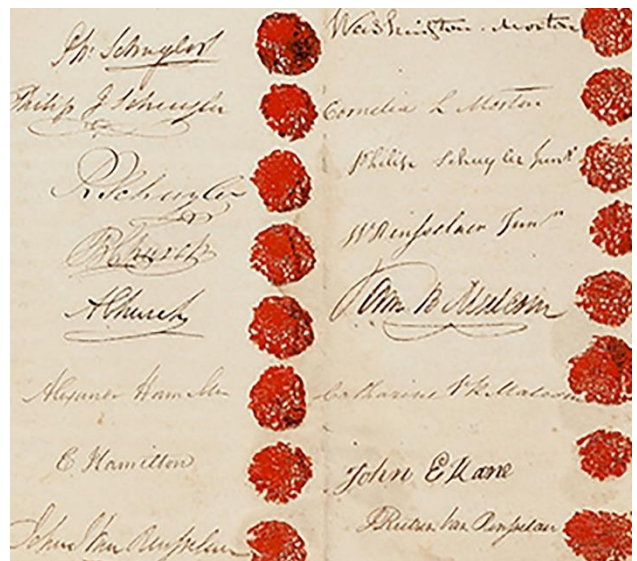 Ph: Schuyler
Philip J Schuyler
R Schuyler
B Church
A Church
Alexander Hamilton
E Hamilton
John Van Rensselaer
Washington Morton
Cornelia L Morton
Philip Schuyler Junr
W Rensselaer Junr
Wm B Malcom
Catharine V R Malcom
John E Kane
Van Rensselaer